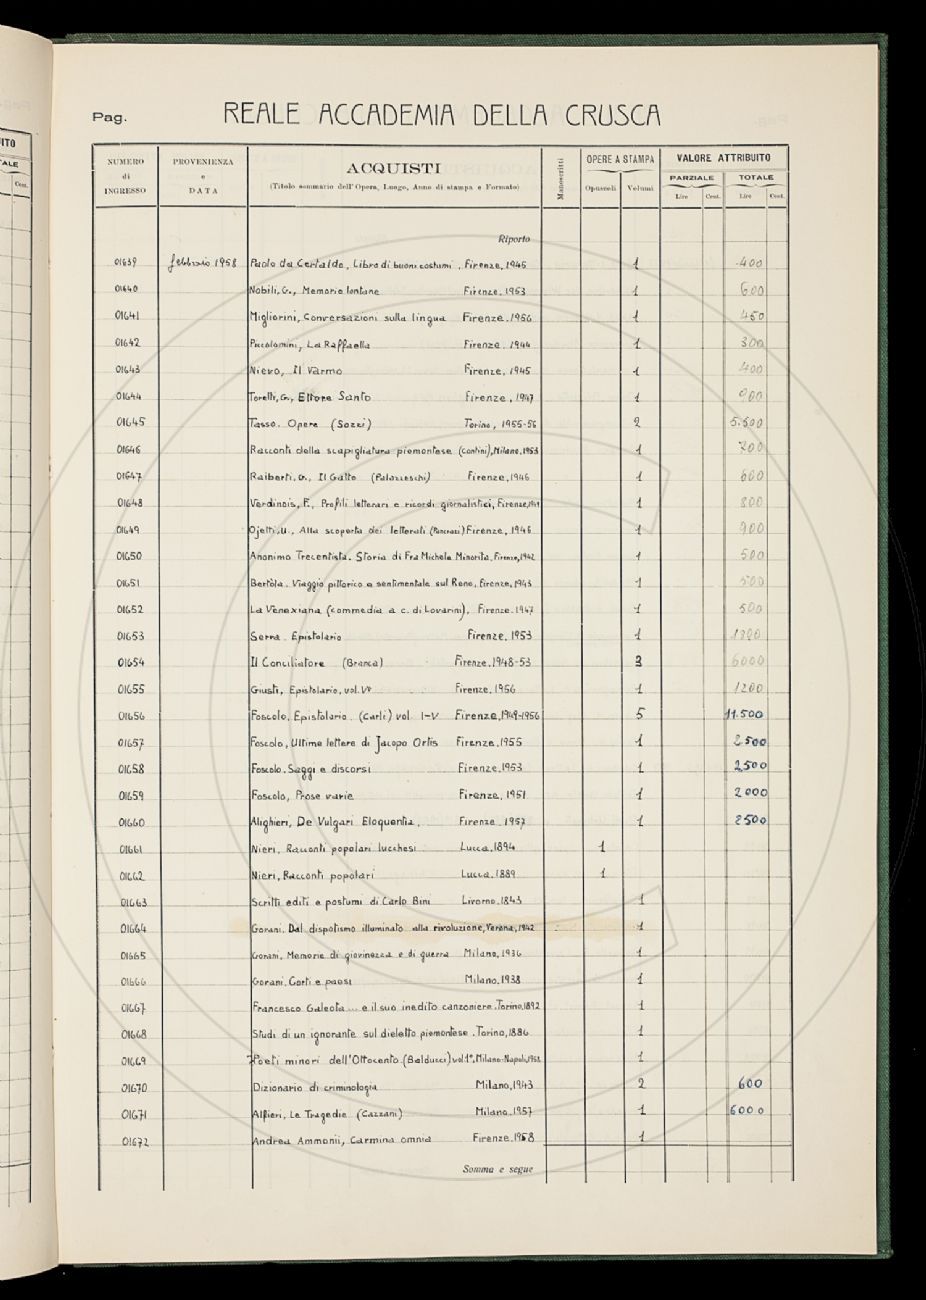 Pag. REALE ACCADEMIA DELLA CRUSCA
NUMERO di INGRESSO
PROVENIENZA e DATA
ACQUISTI
(Titolo sommario dell'Opera, Luogo, Anno di stampa e Formato)
Manoscritti
OPERE A STAMPA
Opuscoli Volumi
VALORE ATTRIBUITO
PARZIALE TOTALE
Lire Cent. Lire Cent.
Riporto
01639 febbraio 1958 Paolo da Certaldo, Libro di buoni costumi, Firenze, 1945 1 400
01640 Nobili, G., Memorie lontane Firenze, 1953 1 600
01641 Migliorini, Conversazioni sulla lingua Firenze, 1956 1 450
01642 Piccolomini, La Raffaella Firenze, 1944 1 300
01643 Nievo, Il Varmo Firenze, 1945 1 400
01644 Torelli, G., Ettore Santo Firenze, 1947 1
01645 Tasso. Opere (Sozzi) Torino, 1955-56 2 5.500
01646 Racconti della scapigliatura piemontese (Contini), Milano, 1953 1 700
01647 Raiberti, G., Il Gatto (Palazzeschi) Firenze, 1946 1 600
01648 Verdinois, F., Profili letterari e ricordi giornalistici, Firenze, 1949 1 800
01649 Ojetti, U., Alla scoperta dei letterati (Pancrazi) Firenze, 1946 1 900
01650 Anonimo Trecentista. Storia di Fra Michele Minorita, Firenze, 1942 1 500
01651 Bertòla. Viaggio pittorico e sentimentale sul Reno, Firenze, 1943 1 500
01652 La Venexiana (commedia a c. di Lovarini), Firenze, 1947 1 500
01653 Serra. Epistolario Firenze, 1953 1
01654 Il Conciliatore (Branca) Firenze, 1948-53 3 6000
01655 Giusti, Epistolario, vol. V° Firenze, 1956 1 1200
01656 Foscolo, Epistolario. (Carli) vol. I-V Firenze, 1949-1956 5 11.500
01657 Foscolo, Ultime lettere di Jacopo Ortis Firenze, 1955 1 2500
01658 Foscolo, Saggi e discorsi Firenze, 1953 1 2500
01659 Foscolo, Prose varie Firenze, 1951 1 2000
01660 Alighieri, De Vulgari Eloquentia. Firenze, 1957 1 2500
01661 Nieri, Racconti popolari lucchesi Lucca, 1894 1
01662 Nieri, Racconti popolari Lucca, 1889 1
01663 Scritti editi e postumi di Carlo Bini Livorno, 1843 1
01664 Gorani. Dal dispotismo illuminato alla rivoluzione, Verona, 1942 1
01665 Gorani, Memorie di giovinezza e di guerra Milano, 1936 1
01666 Gorani, Corti e paesi Milano, 1938 1
01667 Francesco Galeota ... e il suo inedito canzoniere. Torino, 1892 1
01668 Studi di un ignorante sul dialetto piemontese. Torino, 1886 1
01669 Poeti minori dell'Ottocento. (Balducci) vol 1°, Milano-Napoli, 1958 1
01670 Dizionario di criminologia Milano, 1943 2 600
01671 Alfieri, Le Tragedie (Cazzani) Milano, 1957 1 6000
01672 Andrea Ammonii, Carmina omnia Firenze, 1958 1
Somma e segue